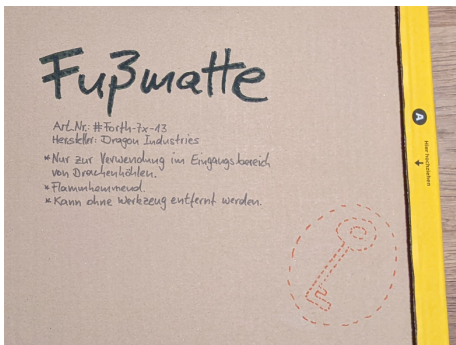 Fußmatte
Art.Nr.: #Forth-7x-13
Hersteller: Dragon Industries
* Nur zur Verwendung im Eingangsbereich
von Drachenhöhlen.
* Flammhemmend.
* Kann ohne Werkzeug entfernt werden.
A
Hier hochziehen